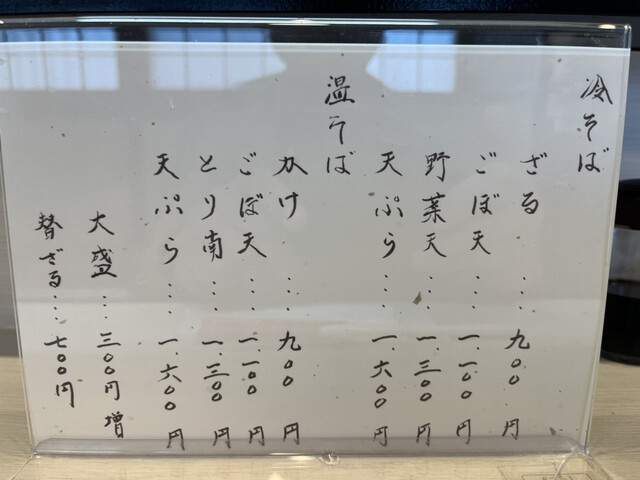 冷そば
ざる....九〇〇円
ごぼ天...一.一〇〇円
野菜天...一.三〇〇円
天ぷら...一.六〇〇円
温そば
かけ...九〇〇円
ごぼ天...一.一〇〇円
とり南...一.三〇〇円
天ぷら...一.六〇〇円
大盛...三〇〇円増
替ざる...七〇〇円